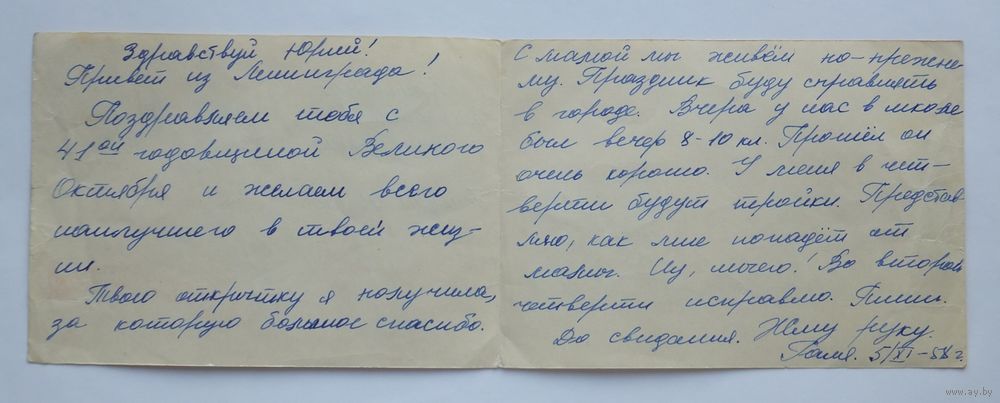 Здравствуй Юрий!
Привет из Ленинграда!
Поздравляем тебя с
41ой годовщиной Великого
Октября и желаем всего
наилучшего в твоей жиз-
ни.
Твою открытку я получила,
за которую большое спасибо.
С мамой мы живём по-прежне-
му. Праздник буду справлять
в городе. Вчера у нас в школе
был вечер 8-10 кл. Прошёл он
очень хорошо. У меня в чет-
верти будут тройки. Представ-
ляю, как мне попадёт от
мамы. Ну, ничего! Во второй
четверти исправлю. Пиши.
До свидания. Жму руку.
Галя. 5/XI-58 г.
www.ay.by